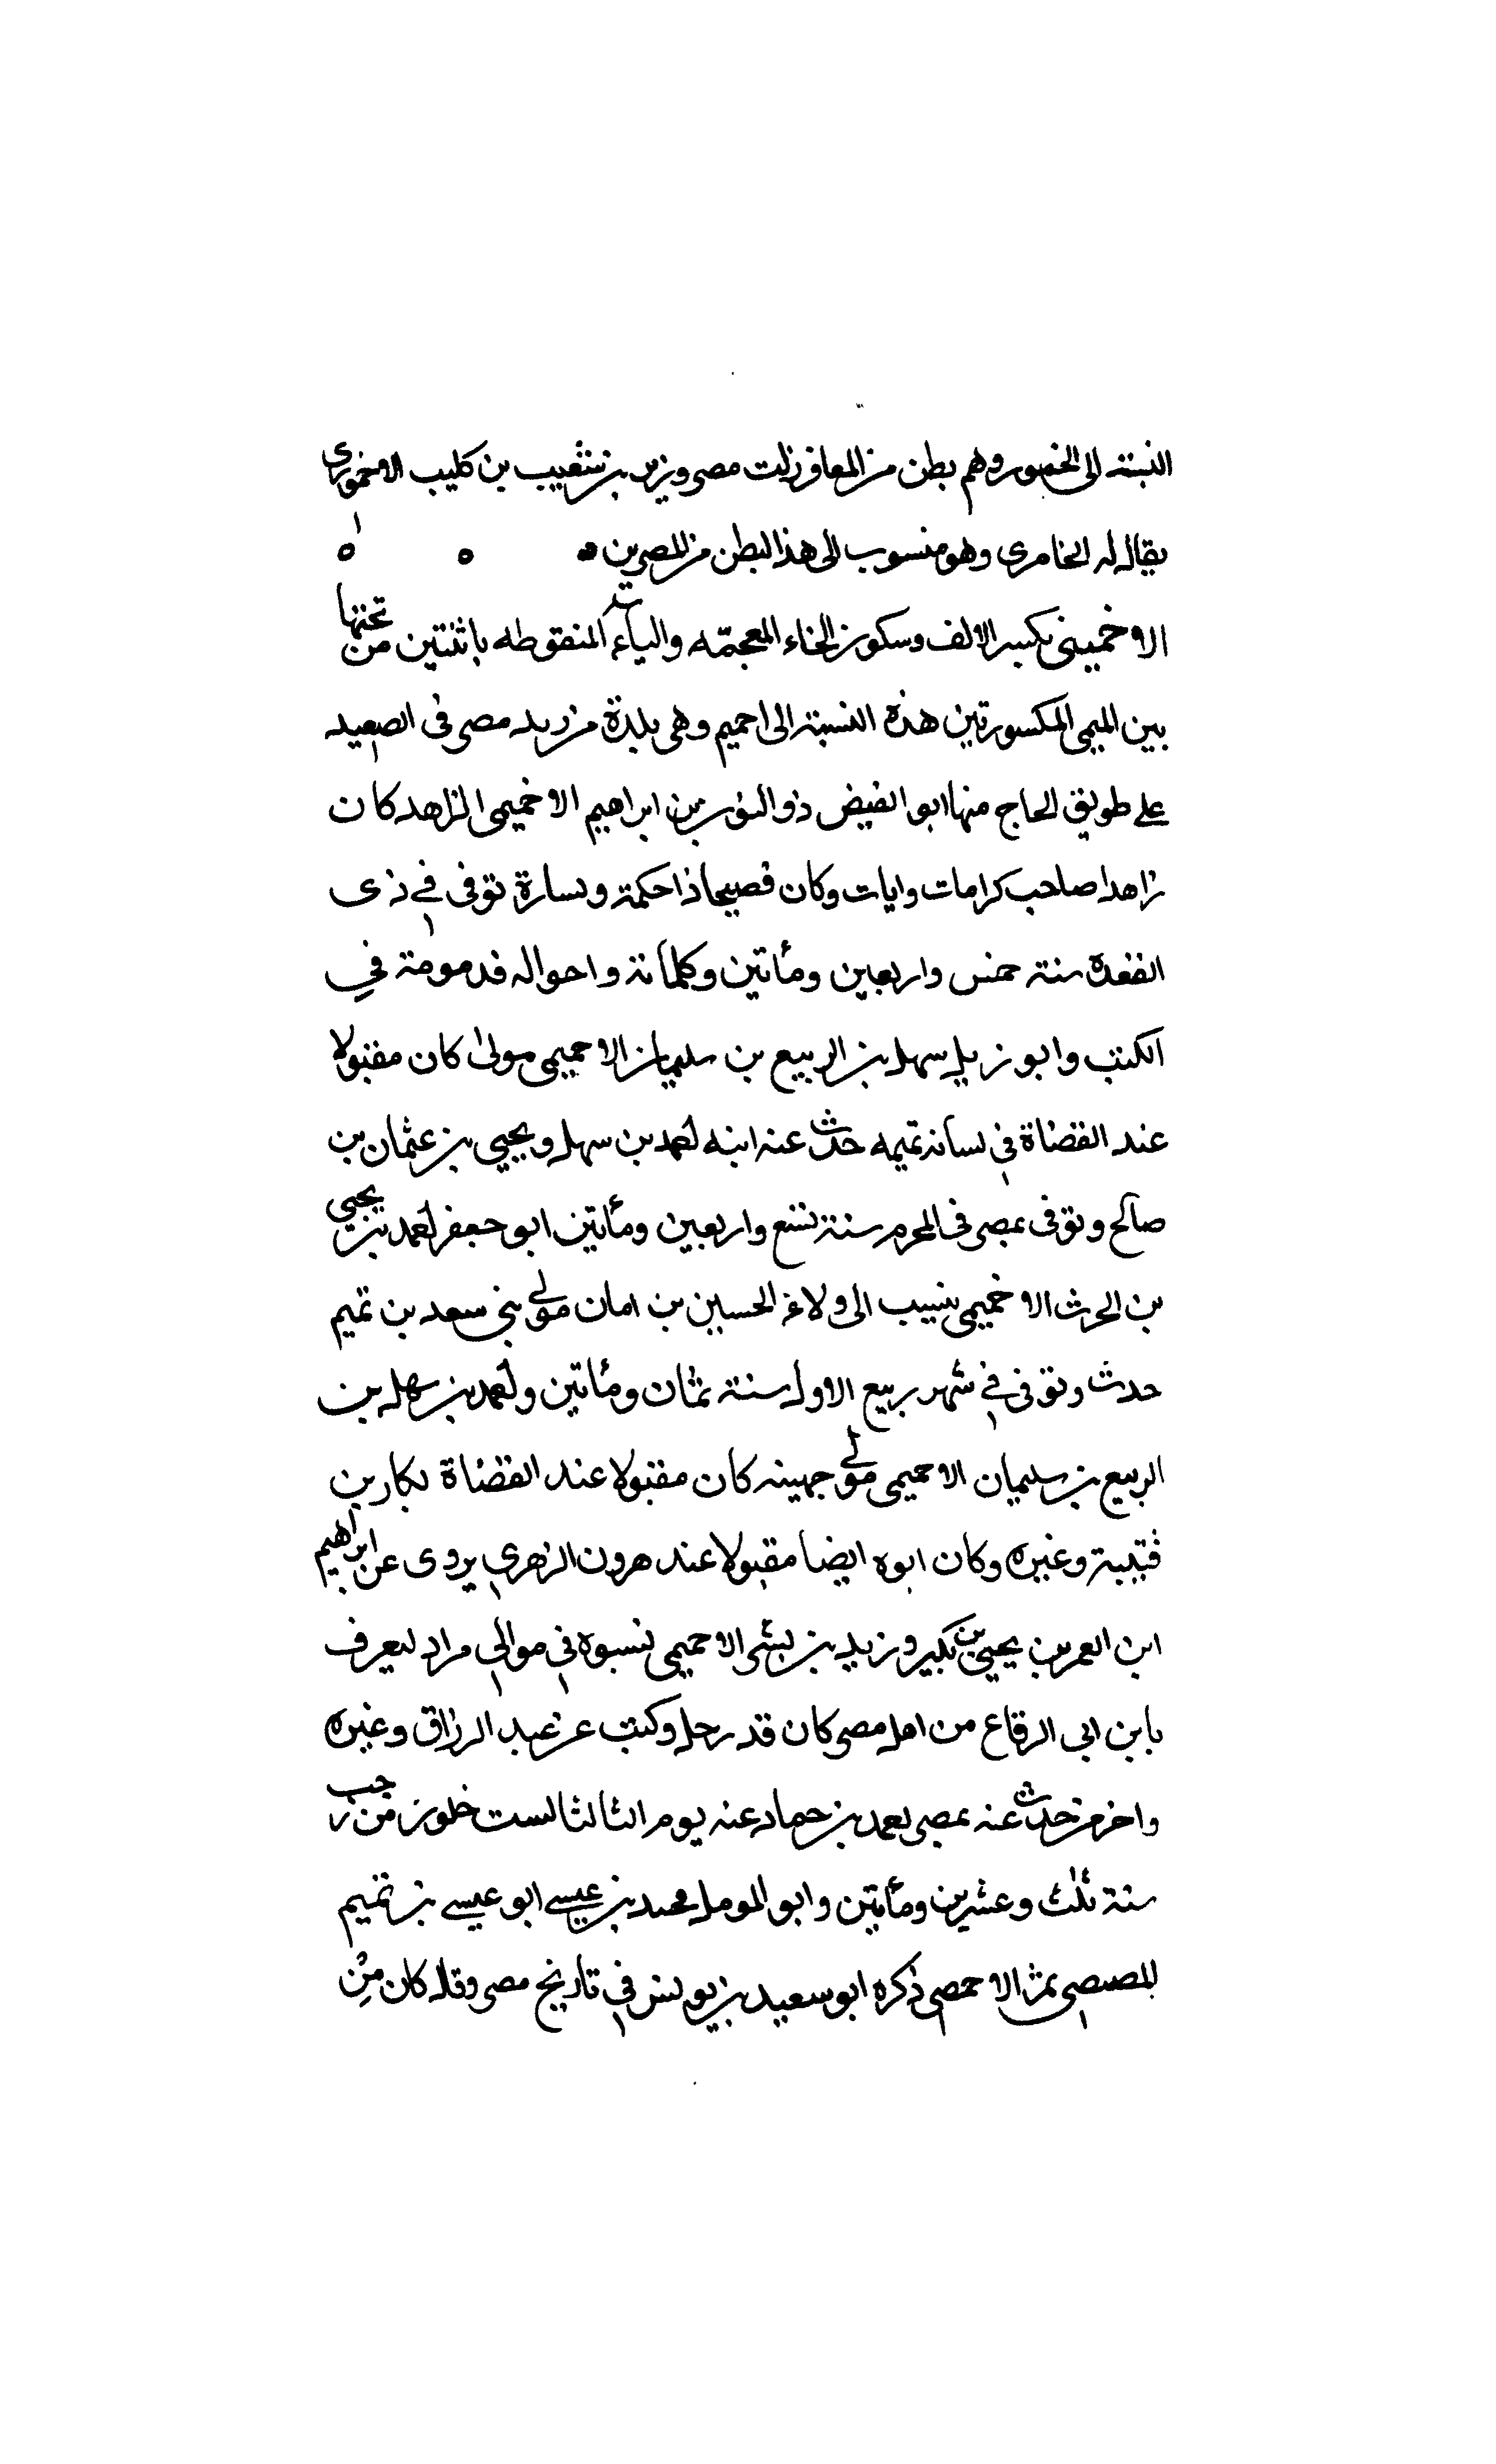 النسبة الى الخمور وهم بطن من المعافر نزلت مصر ويزيد بن شعيب بن كليب الاخمورى
يقال له الخامرى وهو منسوب الى هذا البطن من المصريين
الاخميمى بكسر الالف وسكون الخاء المعجمة والياء المنقوطه باثنتين من تحتها
بين الميمى المكسورتين هذه النسبة الى اخميم وهى بلدة من ديار مصر فى الصعيد
على طريق الحاج منها ابو الفيض ذو النون بن ابراهيم الاخميمى الزاهد كان
زاهدا صاحب كرامات وايات وكان فصيحا ذا حكمة وبسارة توفى فى ذى
القعدة سنة خمس واربعين ومأتين وكلماته واحواله مدمومة في
الكتب وابو زيد سهل بن الربيع بن سليمان الاخميمى مولى كان مقبولا
عند القضاة فى لسانه تميمه حدث عنه ابنه احمد بن سهل ويحيى بن عثمان بن
صالح وتوفى بمصر فى المحرم سنة تسع واربعين ومأتين ابو جعفر احمد بن يحيى
بن الحرث الاخميمى ينسب الى ولاء الحسين بن امان مولى بنى سعد بن تميم
حدث وتوفى فى شهر ربيع الاول سنة ثمان ومأتين واحمد بن سهل بن
الربيع بن سليمان الاخميمى مولى جهينه كان مقبولا عند القضاة بكار بن
قتيبة وغيره وكان ابوه ايضا مقبولا عند هرون الزهرى يروى عن ابراهيم
ابن العمر بن يحيى بن بكير وزيد بن بشر الاخميمى نسبوه فى موالى مراد ليعرف
بابن ابى الرقاع من اهل مصر كان قد رحل وكتب عن عبد الرزاق وغيره
واخر من حدث عنه بمصر احمد بن حماد عنه يوم الثالثا لست خلون من رجب
سنة ثلث وعشرين ومأتين وابو المومل محمد بن عيسى ابو عيسى بن تميم
المصصى ثم الاخمصى ذكره ابو سعيد بن يونس فى تاريخ مصر وقال كان من